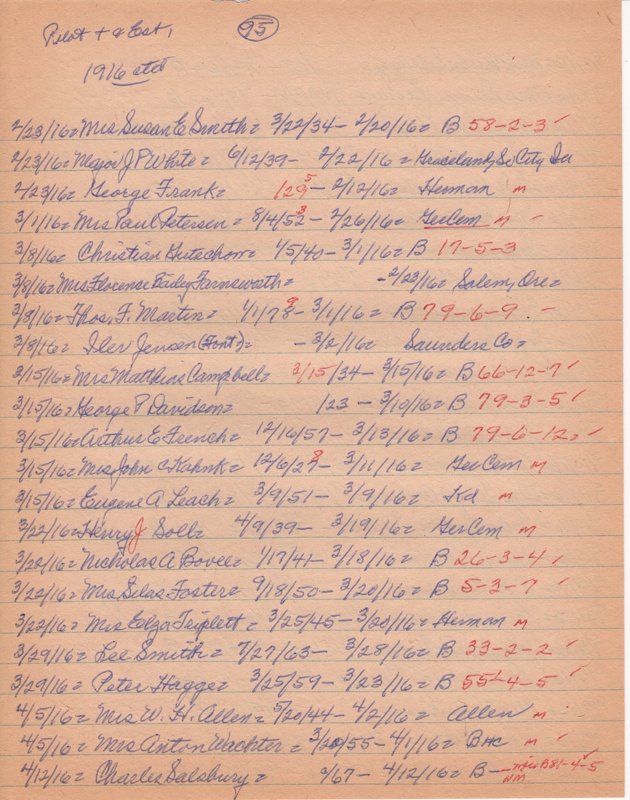 Pilot + & Est, 95
1916 etd
2/23/16= Mrs Susan E Smith= 3/22/34- 2/20/16= B 58-2-3 ✓
2/23/16= Major J P White= 6/12/39- 2/22/16= Graceland, So. City Ia
2/23/16= George Frank= 1295 - 2/12/16= Herman m
3/1/16= Mrs Paul Petersen= 8/4/52 3 - 2/26/16= GerCem m -
3/8/16= Christian Gutschow= 1/5/40- 3/1/16= B 17-5-3
3/8/16= Mrs Florence Baily Farnsworth= - 2/23/16= Salem, Ore=
3/8/16= Thos. F. Martin= 1/1/78 9 - 3/1/16= B 79-6-9. -
3/8/16= Iler Jensen = - 3/2/16= Saunders Co=
3/15/16= Mrs Matthias Campbell= 3/15/34- 3/15/16= B 66-12-7 ✓
3/15/16= George P Davidson= /23 - 3/10/16= B 79-3-5 ✓
3/15/16= Arthur E French= 12/16/57- 3/13/16= B 79-6-12= ✓
3/15/16= Mrs John C Kahnk= 12/6/27 8 - 3/11/16= GerCem m
3/15/16= Eugene A Leach= 3/9/51- 3/9/16= Kd m
3/22/16= Henry J Soll= 4/9/39- 3/19/16= GerCem m
3/22/16= Nicholas A Bovee= 1/17/41- 3/18/16= B 26-3-4 ✓
3/22/16= Mrs Silas Foster= 9/18/50- 3/20/16= B 5-3-7 ✓
3/22/16= Mrs Elza Triplett= 3/25/45- 3/20/16= Herman m
3/29/16= Lee Smith= 7/27/63- 3/28/16= B 33-2-2 ✓
3/29/16= Peter Hagge= 3/25/59- 3/23/16= B 55-4-5 ✓
4/5/16= Mrs W. H. Allen= 5/20/44- 4/2/16= Allen m
4/5/16= Mrs Anton Wachter= 3/20/55- 4/1/16= B m ✓
4/12/16= Charles Salsbury= /67- 4/12/16= B- NM B81-4-5